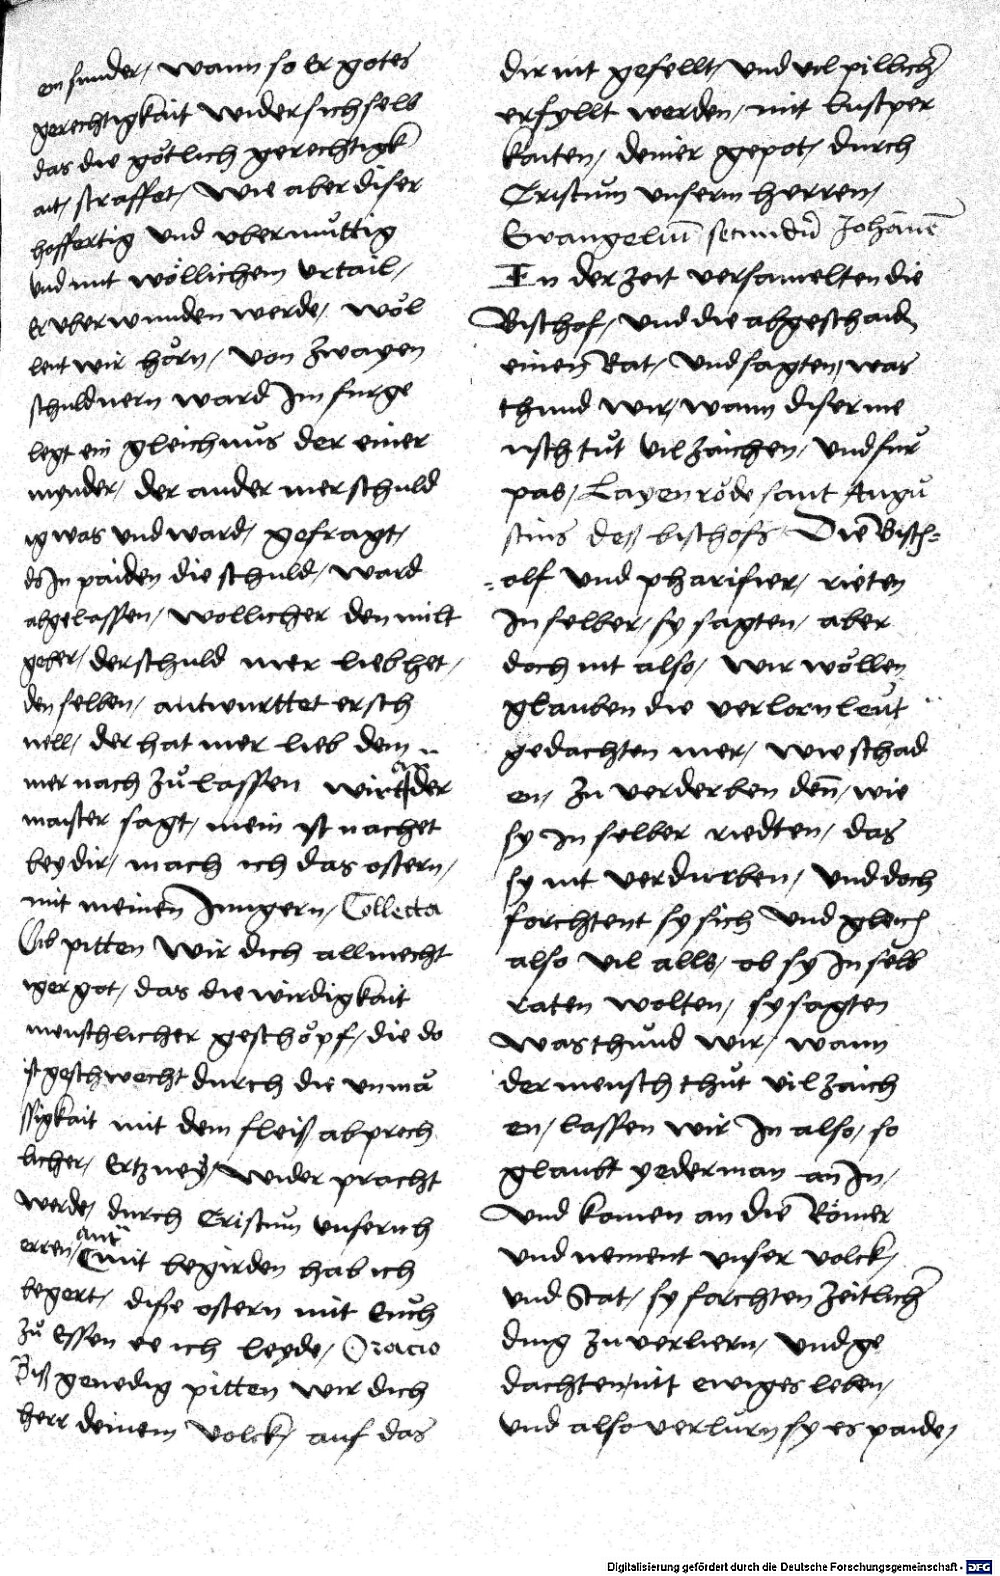 en sunder / wann so Er gotes
gerechtigkait wider sich selb
das die götlich gerechtigk
ait / straffet / Wie aber diser
hoffertig und ubermüttig
und mit wöllichem urtail /
Er uberwunden werde / wöl
lent wir hörn / Von Zwayen
schuldnern ward Im furge
legt ein gleichnus der einer
mynder / der ander mer schuld
ig was und ward / gefragt /
ds In paiden die schuld / ward
abgelassen / wöllicher den milt
geber / der schuld mer lieb het /
den selben / antwurttet er sch
nell / der hat mer lieb dem
mer nach Zů lassen wirt der
maister sagt / mein ist nachet
bey dir / mach ich das ostern /
mit meinen Jungern / Collecta
Gib pitten Wir dich allmecht
iger got / das die wirdigkait
menschlicher geschöpf / die do
ist geschwecht durch die unmä
ssigkait mit dem fleiß abprech
licher / Ertzney / wider pracht
werde / durch Cristum unsern h
erren / Ant mit begirden hab ich
begert / dise ostern mit Euch
Zů Essen ee ich leyde / Oracio
Biß genedig pitten wir dich
herr deinem Volck / auf das
dir mit gefellt / und vil pillicher
erfyllt werden / mit lustper
kaiten / deiner gepot / durch
Cristum unsern herren /
Evangeliu secundu Johannē
In der Zeit versamelten die
Bischof / und die abgeschaiden
einen Rat / und sagten / was
thund wir / wann diser me
nsch tůt vil Zaichen / und fur
pas / Layen röde sant Augu
stins deß bischofs Die Bisch=
=olf und pharisier / rieten
In selber / sy sagten / aber
doch nit also / wir wöllen
glauben die verlorn leut
gedachten mer / wie schad
en / Zu verderben denn / wie
sy In selber riedten / das
sy nit verdurben / und doch
forchtent sy sich und gleich
also vil alls / ob sy In selb
raten wolten / sy sagten
Was thund wir / wann
der mensch thůt vil Zaich
en / lassen wir In also / so
glaubt yederman an In /
und komen an die Römer
und nement unser volck /
und Stat / sy forchten Zeitlicher
ding Zu verliern / und ge
dachten nit ewiges leben /
und also verlurn sy es paide /
Digitalisierung gefördert durch die Deutsche Forschungsgemeinschaft - DFG